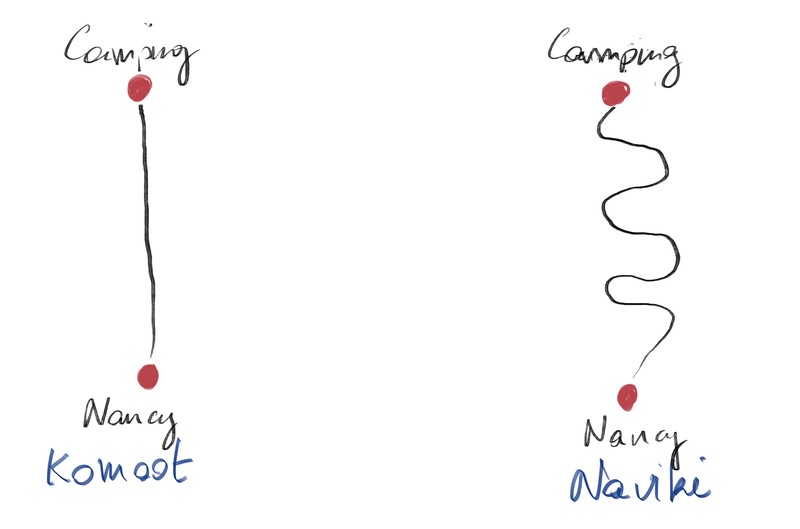 Camping
Nancy
Komoot
Camping
Nancy
Naviki